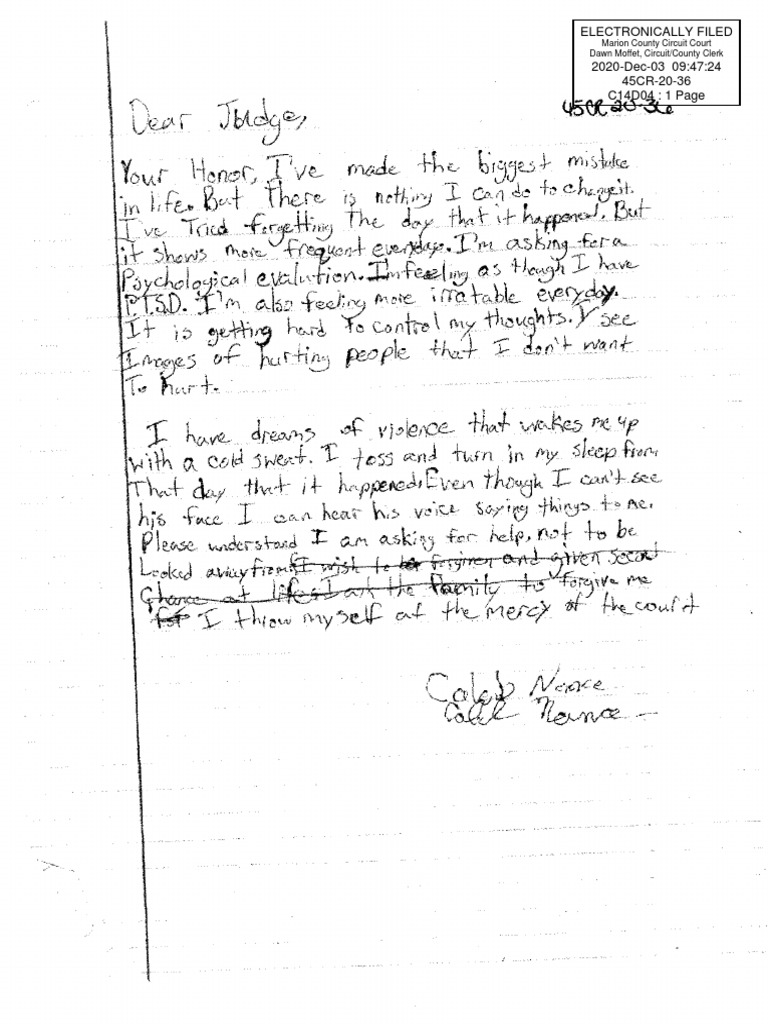 ELECTRONICALLY FILED
Marion County Circuit Court
Dawn Moffet, Circuit/County Clerk
2020-Dec-03 09:47:24
45CR-20-36
C14D04 : 1 Page
45CR-20-36
Dear Judge,
Your Honor, I've made the biggest mistake
in life. But There is nothing I can do to change it.
I've Tried forgetting The day that it happened. But
it shows more frequent everydays. I'm asking for a
Psychological evalution. I'm feeling as though I have
P.T.S.D. I'm also feeling more irratable everyday.
It is getting hard To control my thoughts. I see
Images of hurting people that I don't want
To hurt.
I have dreams of violence that wakes me up
with a cold sweat. I toss and turn in my sleep from
That day that it happened. Even though I can't see
his face I can hear his voice saying things to me.
Please understand I am asking for help, not to be
Looked away from. I wish to be forgiven and given second
Chance at life. I ask the family to forgive me
for I throw myself at the mercy of the court
Caleb Nance
Caleb Nance